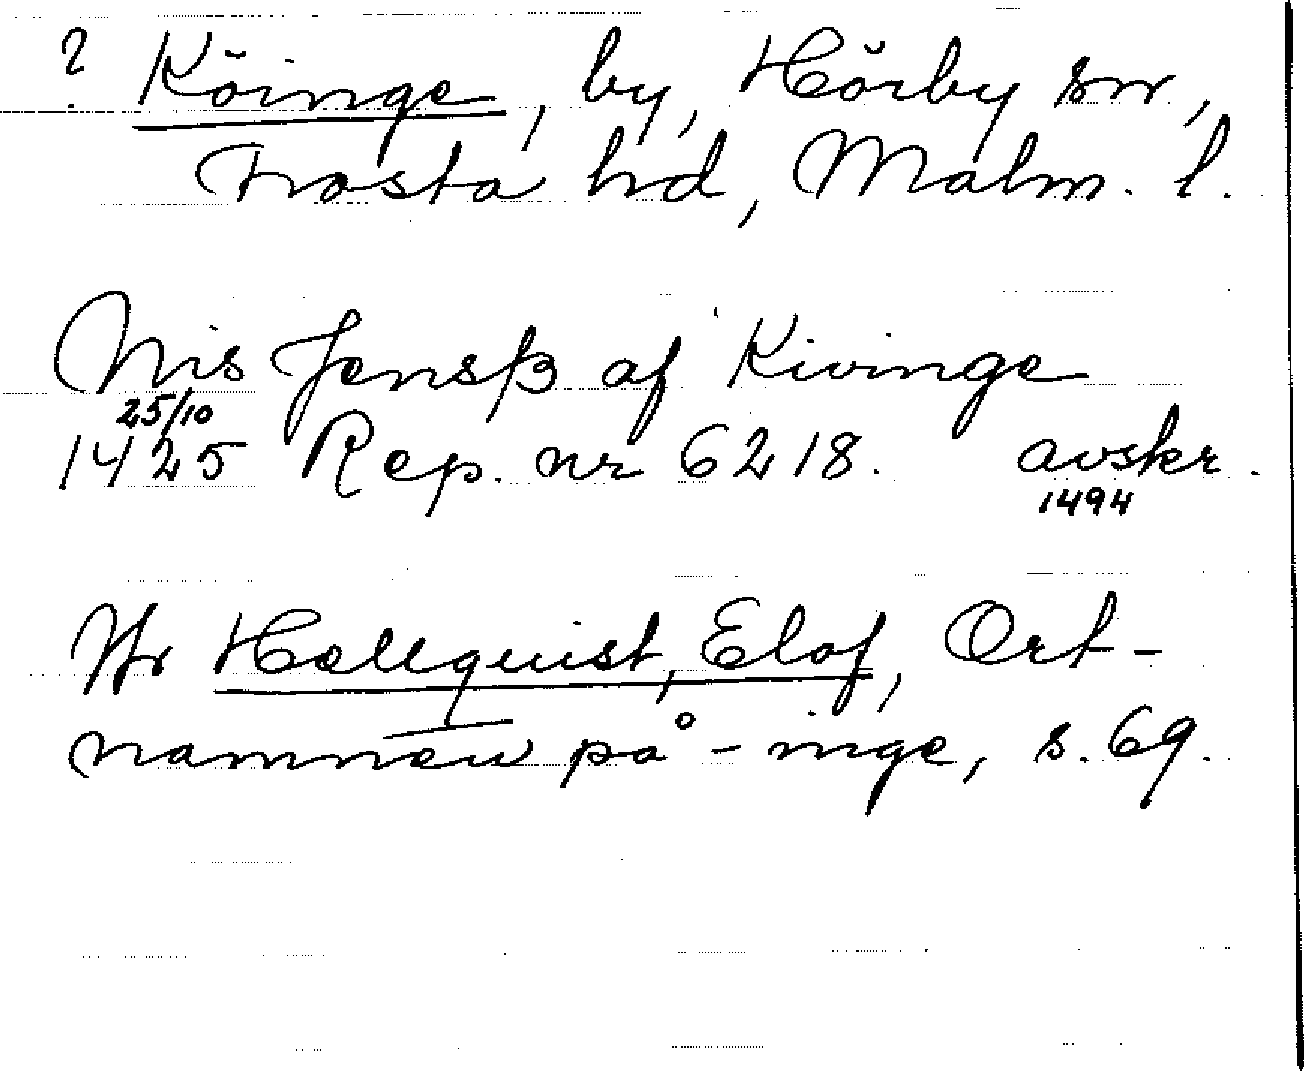 ? Köinge, by, Hörby sn,
Frosta hd, Malm. l.
Nis Jensß af Kivinge
25/10
1425 Rep. nr 6218. avskr.
1494
Jfr Hellquist, Elof, Ort-
namnen på -inge, s. 69.